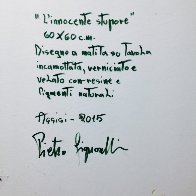 "L'innocente stupore"
60X60 c.m.
Disegno a matita su tavola
incamottata, verniciato e
velato con resine e
pigmenti naturali
Assisi - 2015
Pietro